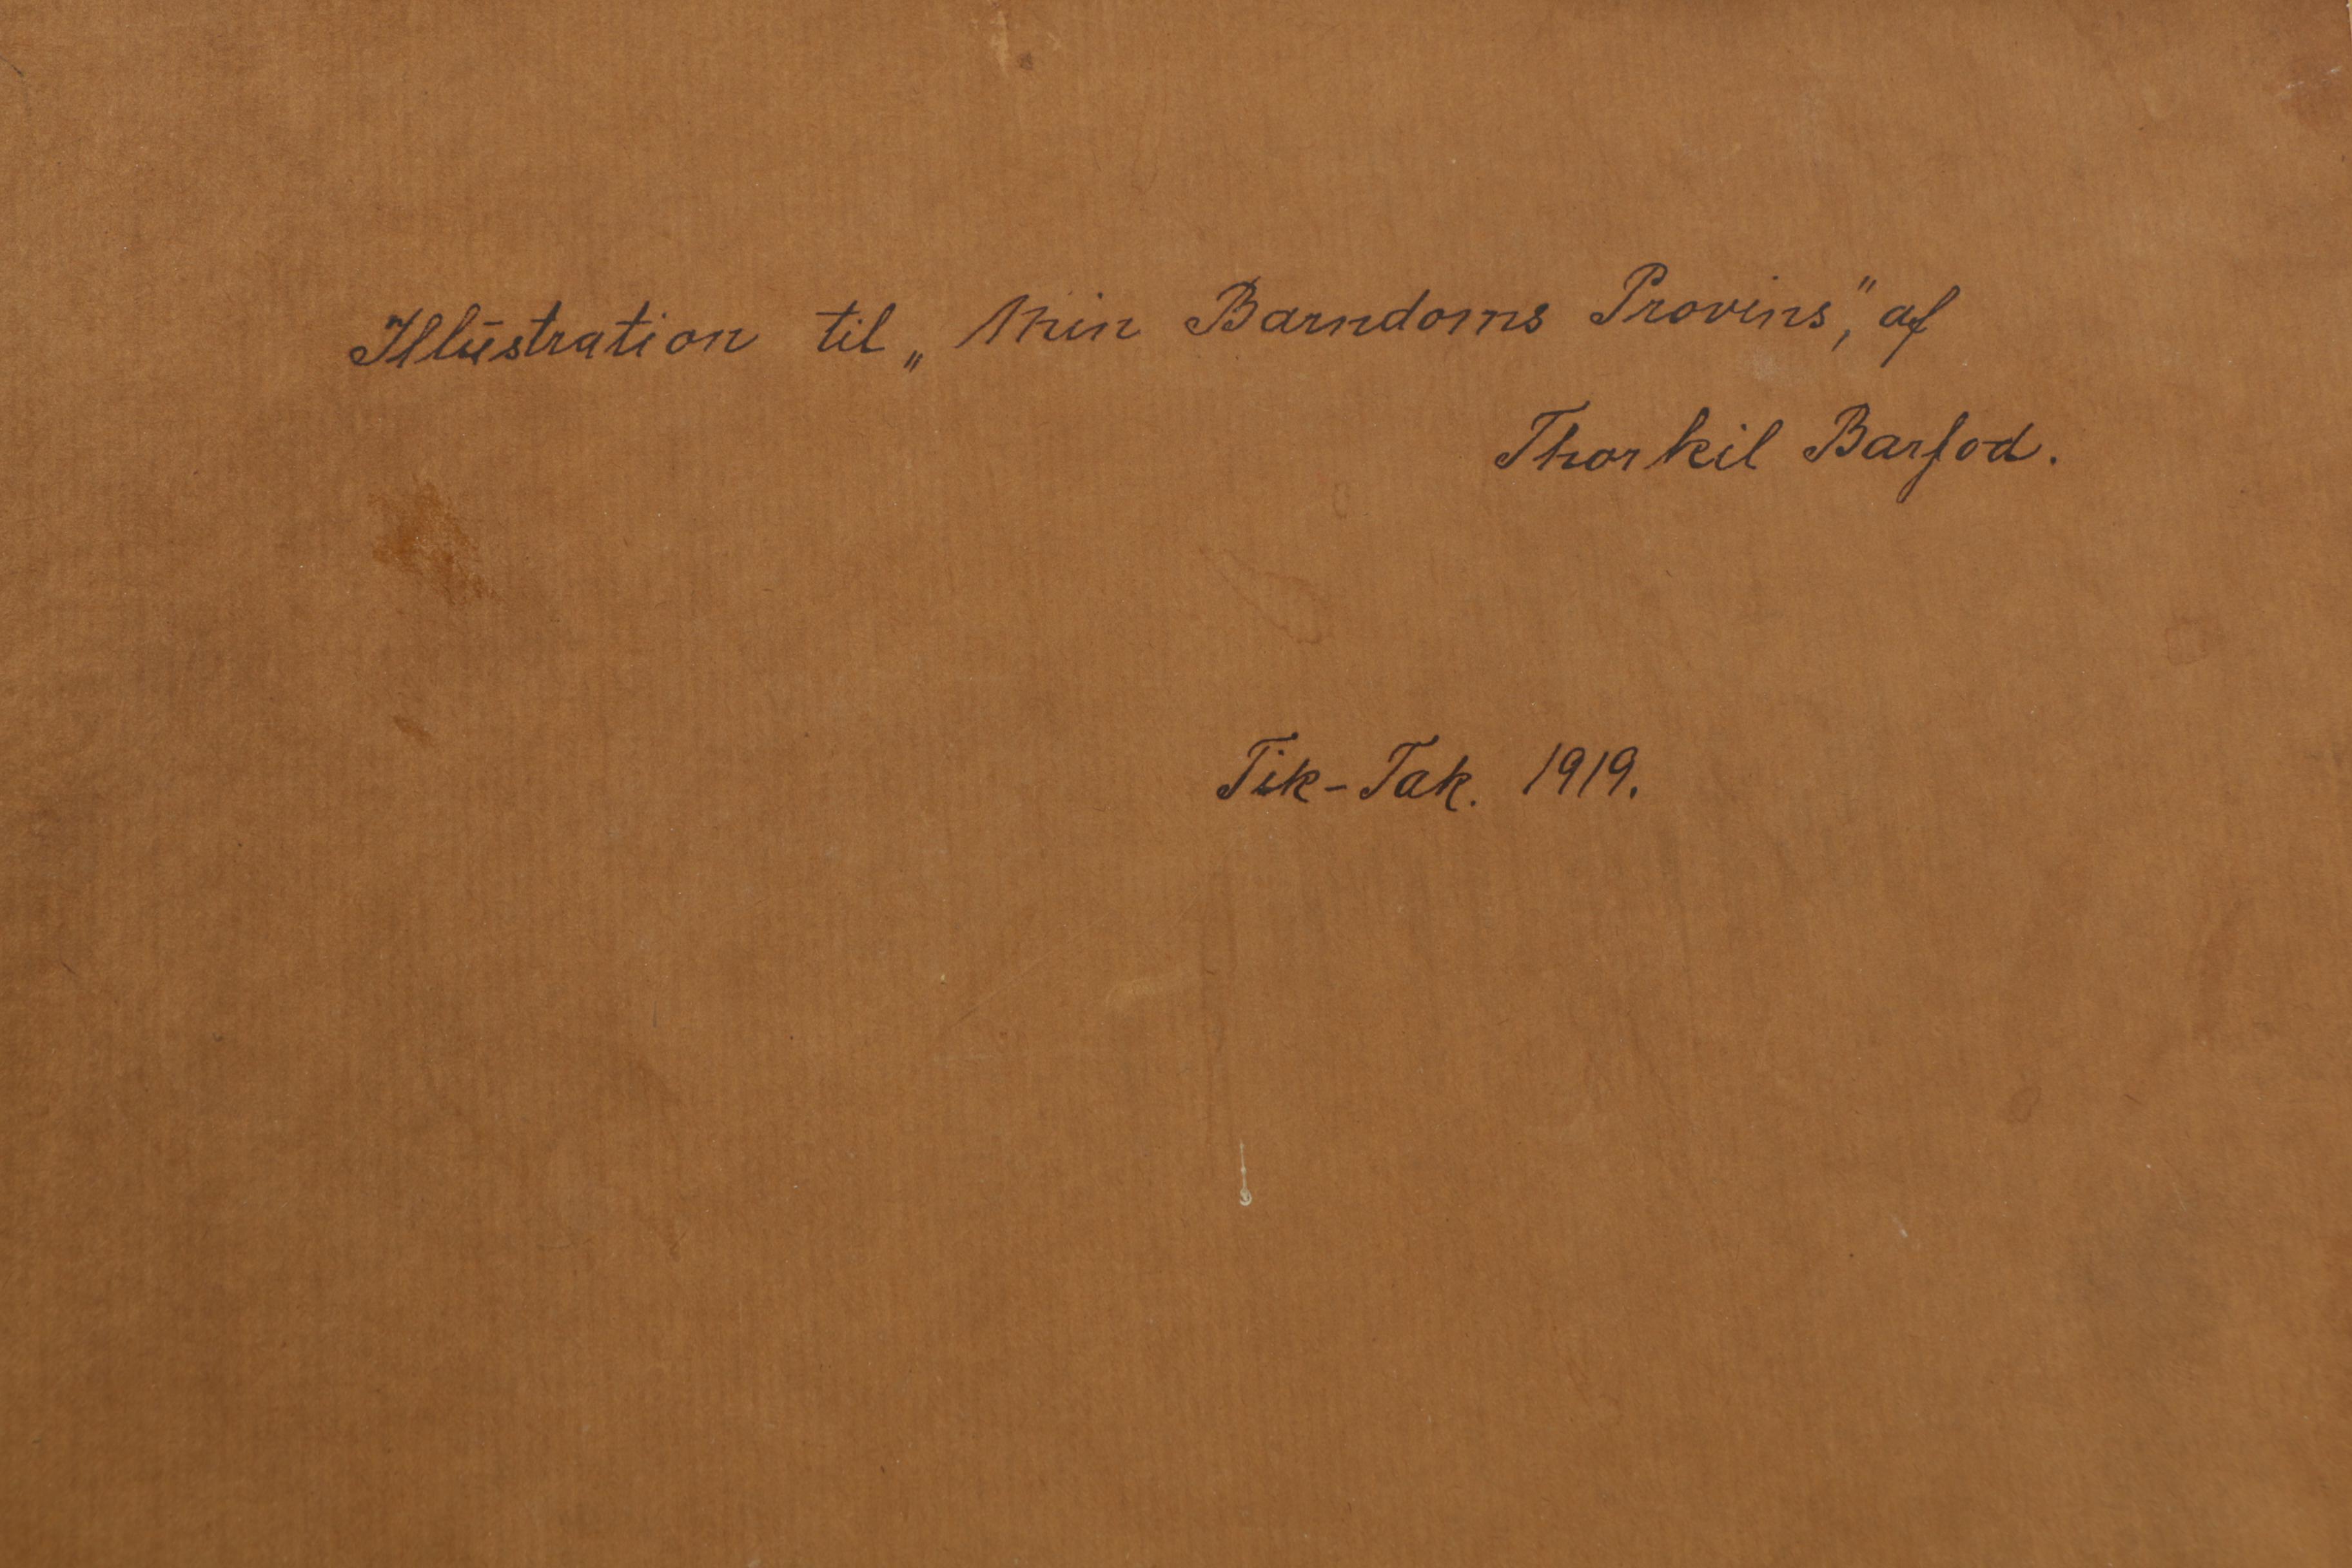 Illustration til „Min Barndoms Provins”, af
Thorkil Barfod.
Tik-Tak. 1919.